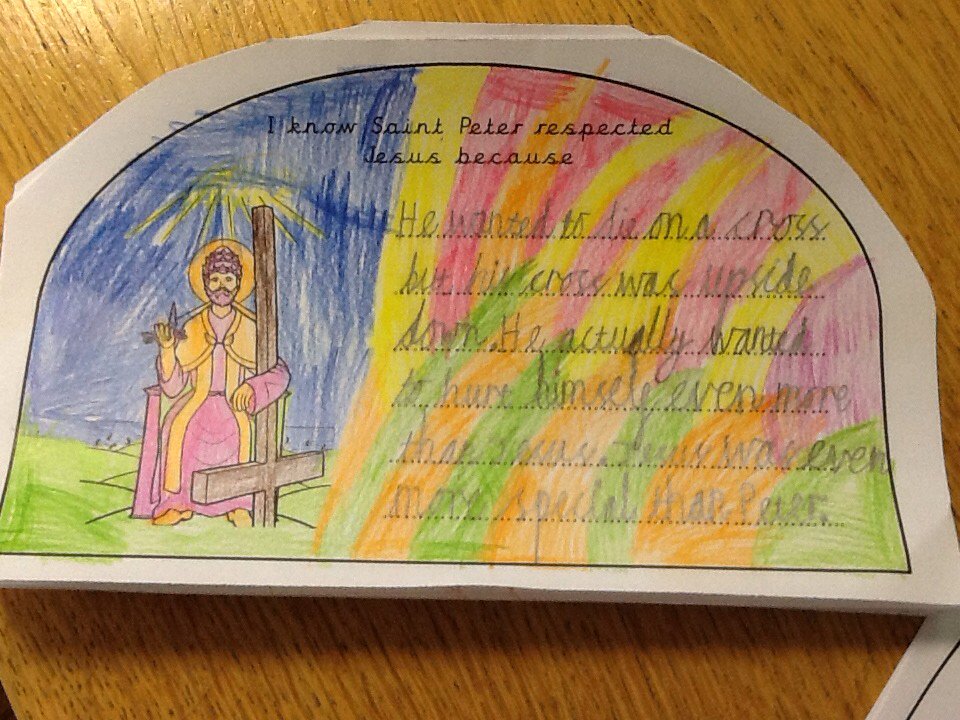 I know Saint Peter respected
Jesus because
He wanted to die on a cross
but his cross was upside
down. He actually wanted
to hurt himself even more
than Jesus. Jesus was even
more special than Peter.